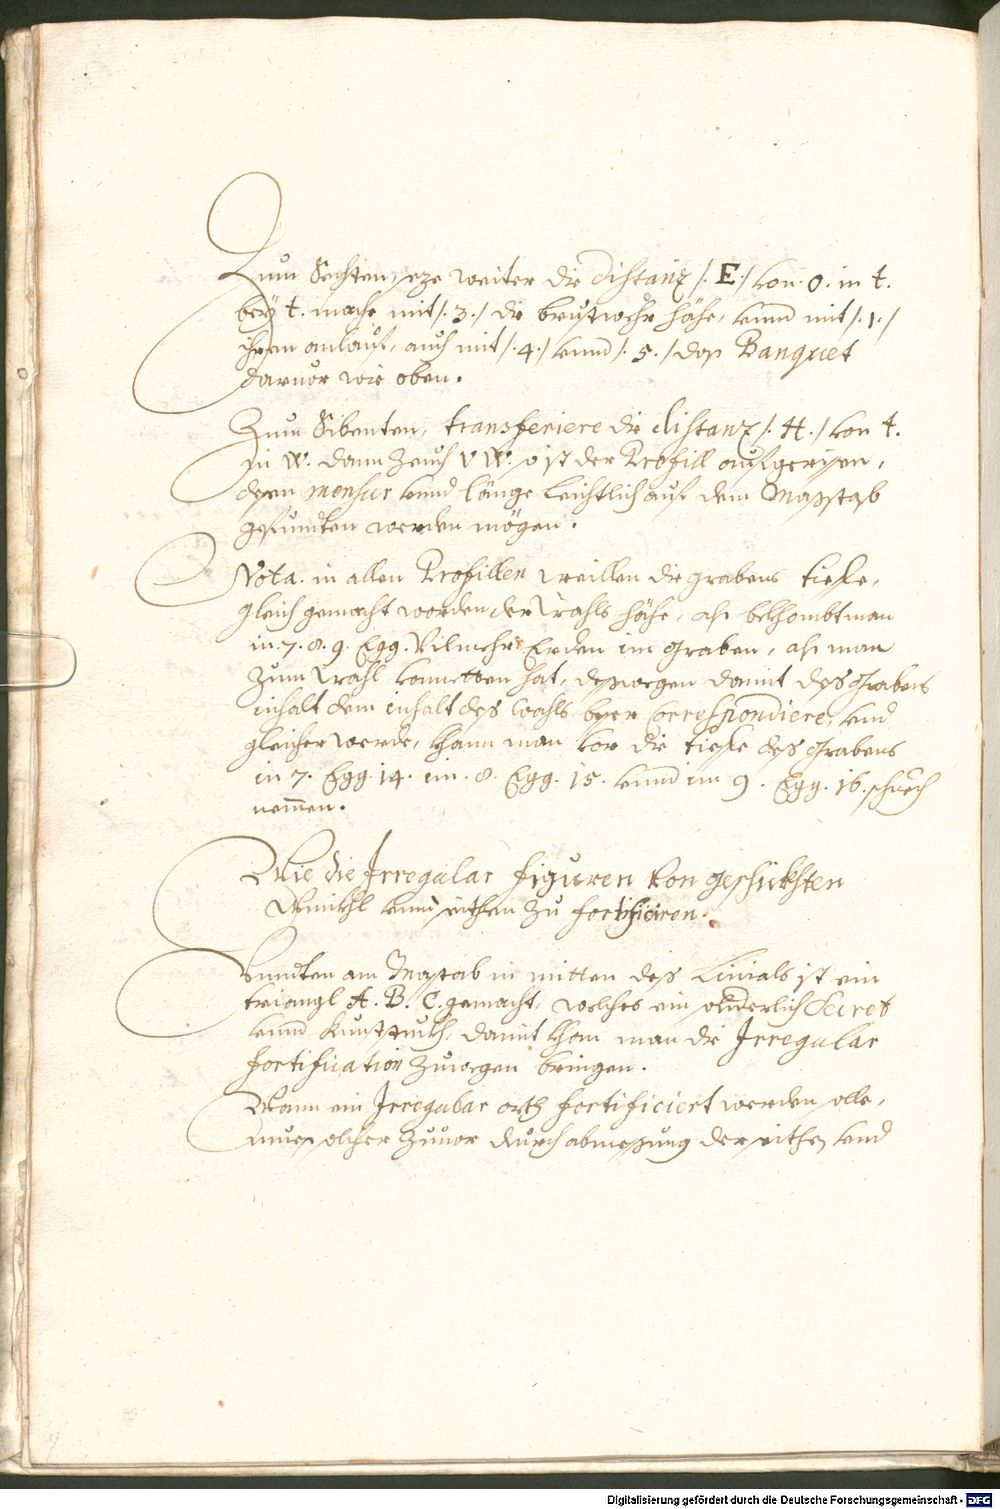 Zum Sechsten, seze weiter die distanz /: E :/ von o. in t.
beÿ t. mache mit /: 3 :/ die brustwehr höhe, vnnd mit /: 1 :/
ihren anlauf, auch mit /: 4 :/ vnnd /: 5 :/ das Banquet
darvor wie oben.
Zum Sibenten, transferiere die distanz /: H :/ von t.
in W. dann zeuch V W. so ist der Profill aufgerisen,
deren mensur vnnd länge leichtlich auf dem Maßstab
gefundten werden mögen.
Nota. in allen Profillen weillen die grabens tieffe,
gleich gemacht worden der Wahls höhe, also bekhombt man
in 7. 8. 9. Egg. Vilmehr Erden im Graben, als man
zum Wahl vonnetten hat, deßwegen damit deß Grabens
inhalt dem inhalt deß Wahls besser Correspondiere, vnd
gleicher werde, khann man vor die tieffe des Grabens
in 7. Egg. 14. im 8. Egg. 15. vnnd im 9. Egg. 16. schuech
nemmen.
Wie die Irregular figuren von geschickhsten
Winkhl vnnd seithen zu fortificiren.
Vnndten am Maßstab in mitten deß Linials ist ein
triangl A. B. C. gemacht, welches ein sonderlich Secret
vnnd Kunststuckh, damit khan man die Irregular
fortification zuwegen bringen.
Wann ein Irregular orth fortificiert werden solle,
mueß solcher zuuor durch abmessung der seithen vnd
Digitalisierung gefördert durch die Deutsche Forschungsgemeinschaft - DFG